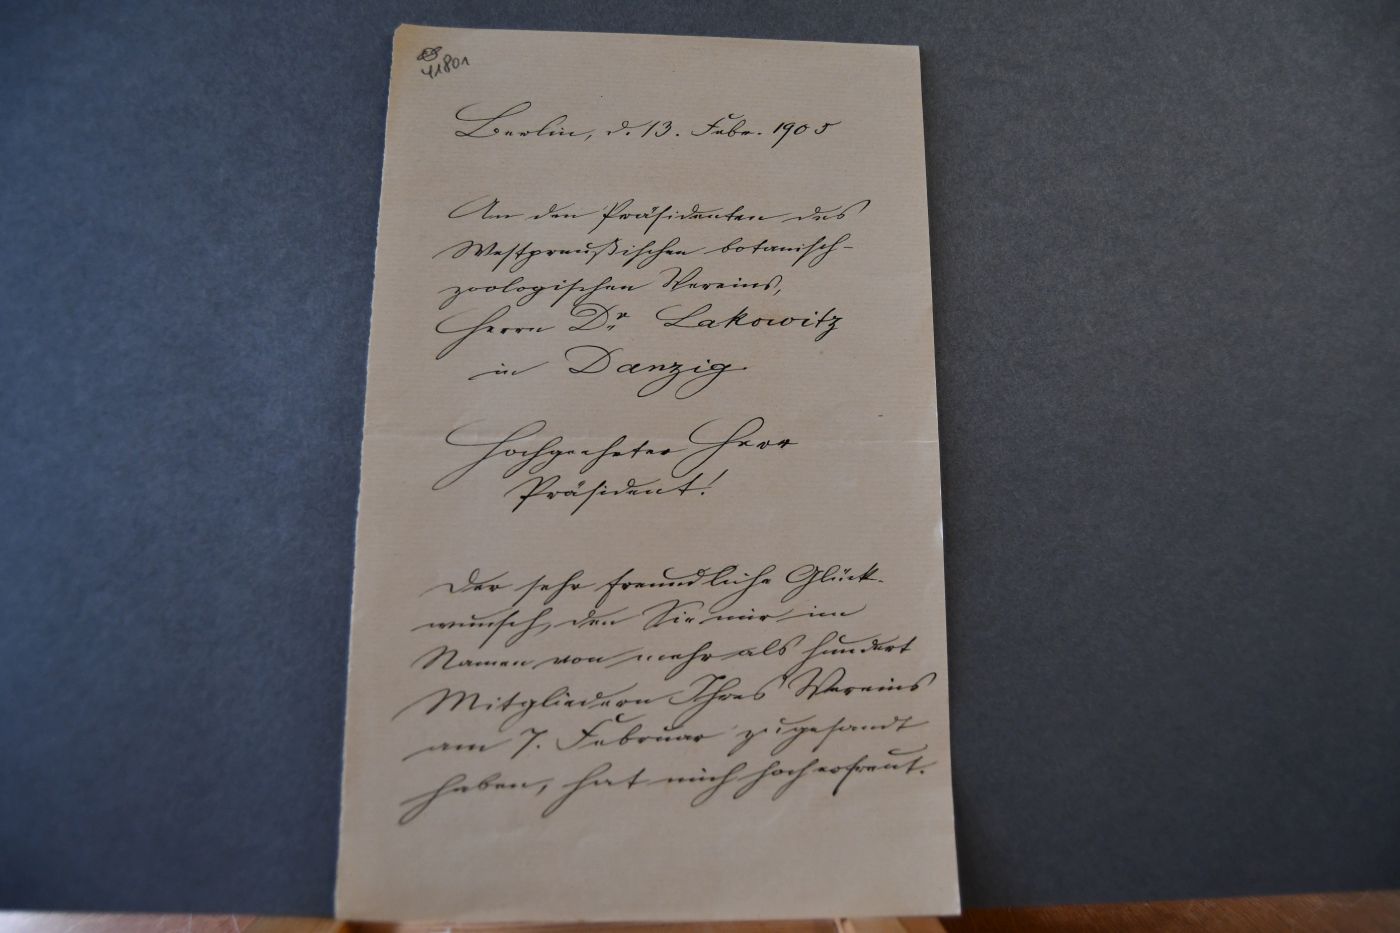 41801
Berlin, d. 13. Febr. 1905
An den Präsidenten des
Westpreußischen botanisch-
zoologischen Vereins,
Herrn Dr. Lakowitz
in Danzig
Hochgeehrter Herr
Präsident!
Der sehr freundliche Glück-
wunsch, den Sie mir im
Namen von mehr als hundert
Mitgliedern Ihres Vereins
am 7. Februar zugesandt
haben, hat mich hoch erfreut.